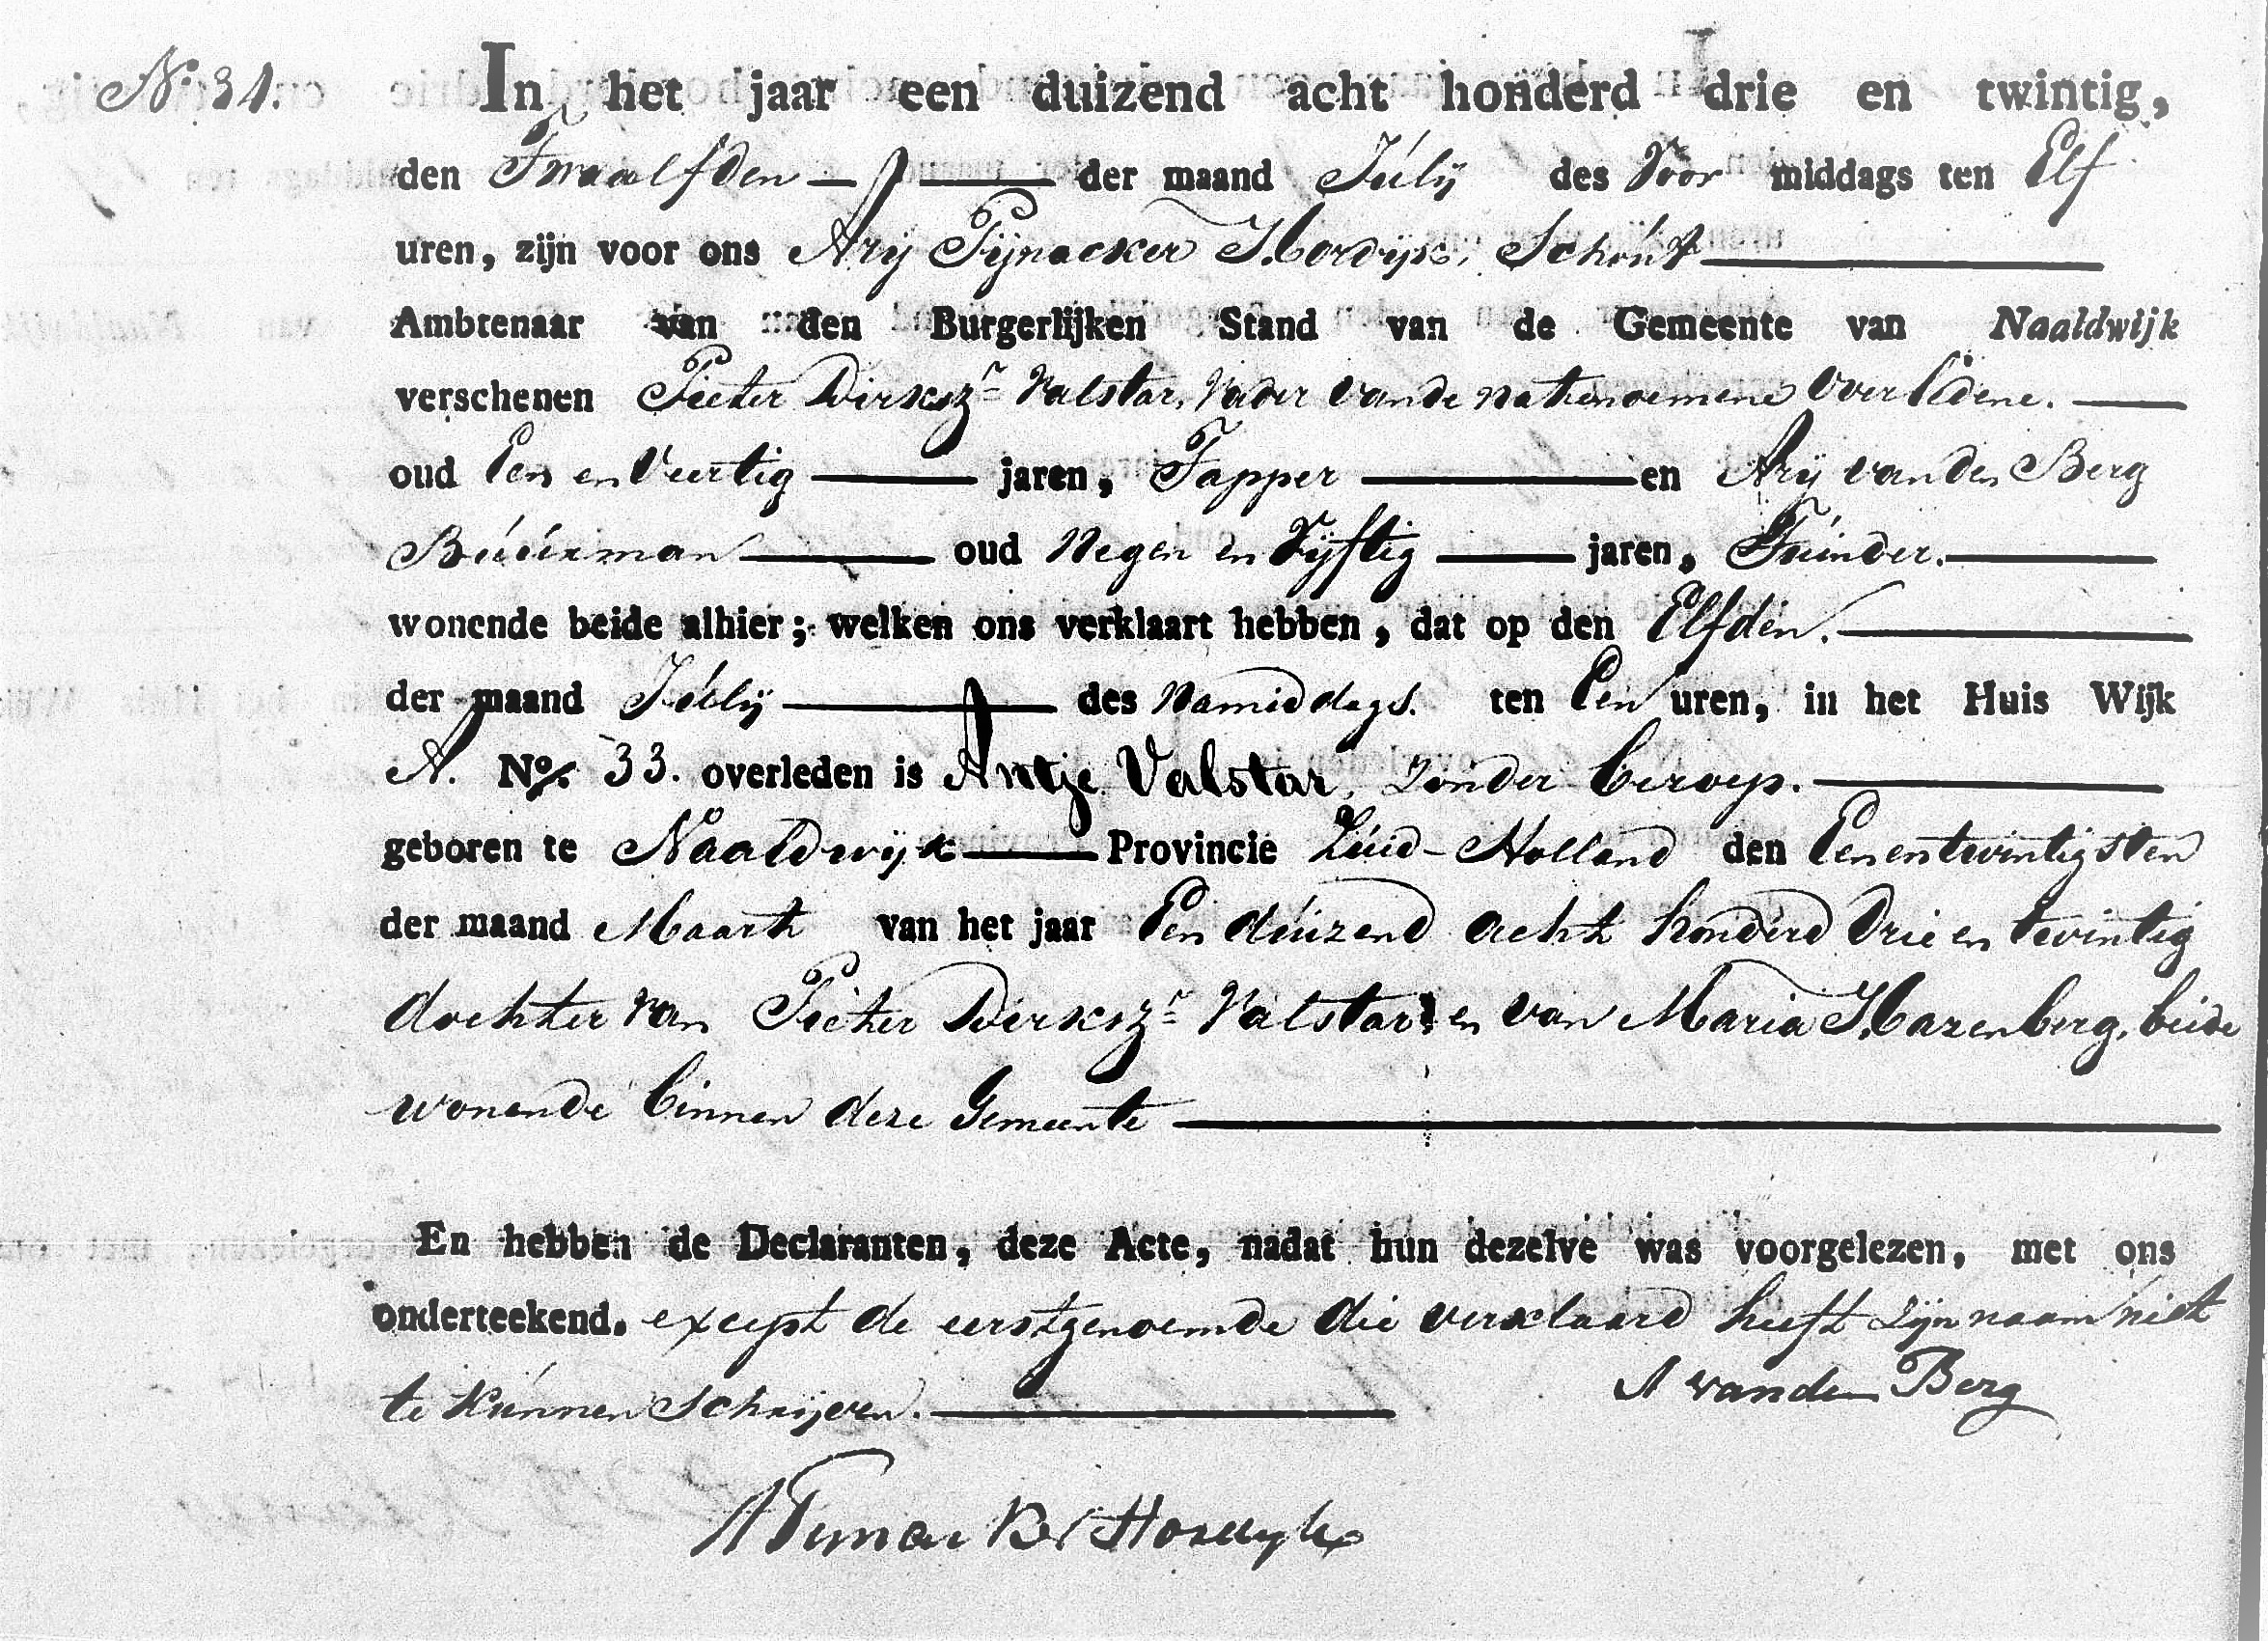 No. 31. In het jaar een duizend acht honderd drie en twintig,
den Twaalfden der maand Julij des Voor middags ten Elf
uren, zijn voor ons Arij Pijnacker Hordijk, Schout
Ambtenaar van den Burgerlijken Stand van de Gemeente van Naaldwijk
verschenen Pieter Dirksz.r Valstar, Vader van de natenoemene Overledene.
oud Een en Veertig jaren, Tapper en Arij van den Berg
Buurman oud Negen en Vijftig jaren, Tuinder.
wonende beide alhier; welken ons verklaart hebben, dat op den Elfden.
der maand Julij des Namiddags. ten Een uren, in het Huis Wijk
A. No. 33. overleden is Antje Valstar, zonder beroep.
geboren te Naaldwijk Provincie Zuid-Holland den Een en twintigsten
der maand Maart van het jaar Een duizend acht honderd Drie en twintig
dochter van Pieter Dirksz.r Valstar en van Maria Hazenberg, beide
wonende binnen deze Gemeente
En hebben de Declaranten, deze Acte, nadat hun dezelve was voorgelezen, met ons
onderteekend. except de eerstgenoemde die verklaard heeft zijn naam niet
te kunnen schrijven.
A van den Berg
A Pijnacker Hordijk